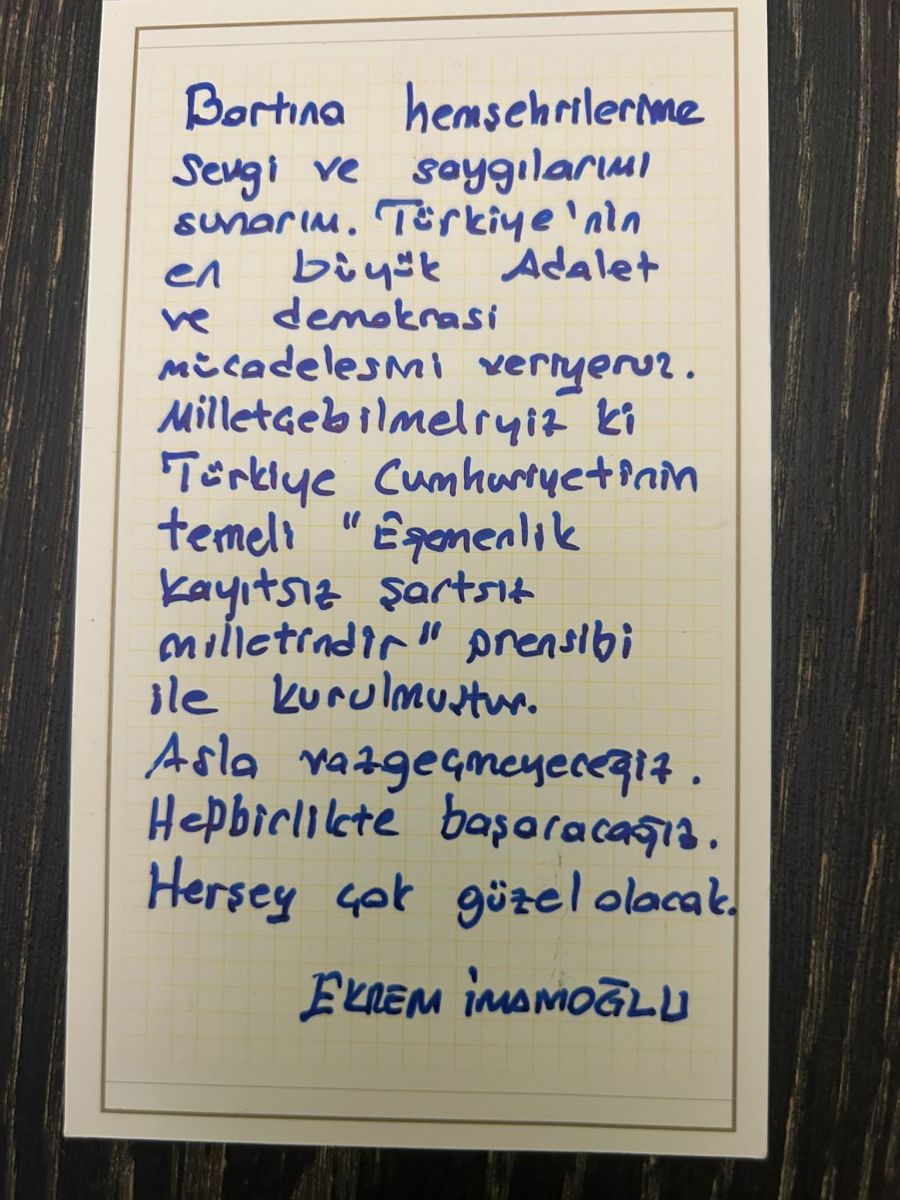 Bartına hemşehrilerime
sevgi ve saygılarımı
sunarım. Türkiye'nin
en büyük Adalet
ve demokrasi
mücadelesini veriyoruz.
Milletçebilmeliyiz ki
Türkiye Cumhuriyetinin
temeli "Egemenlik
kayıtsız şartsız
milletindir" prensibi
ile kurulmuştur.
Asla vazgeçmeyeceğiz.
Hepbirlikte başaracağız.
Herşey çok güzel olacak.
EKREM İMAMOĞLU